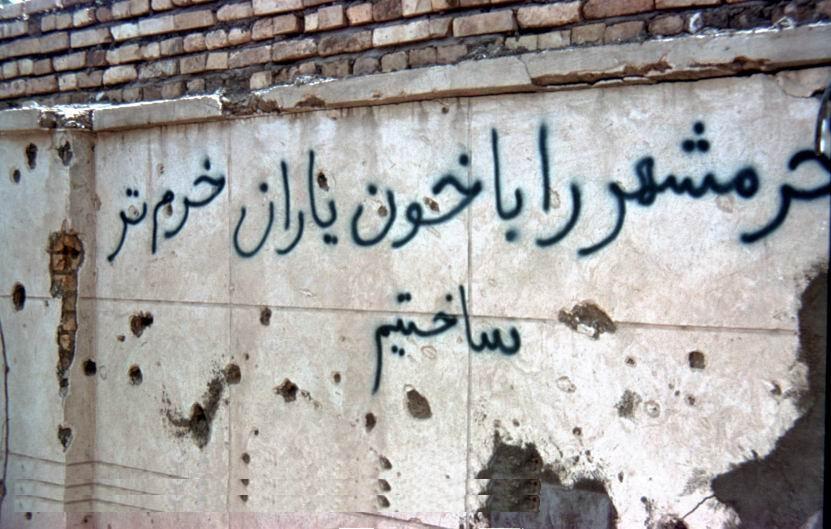 خرمشهر را با خون یاران خرم تر
ساختیم